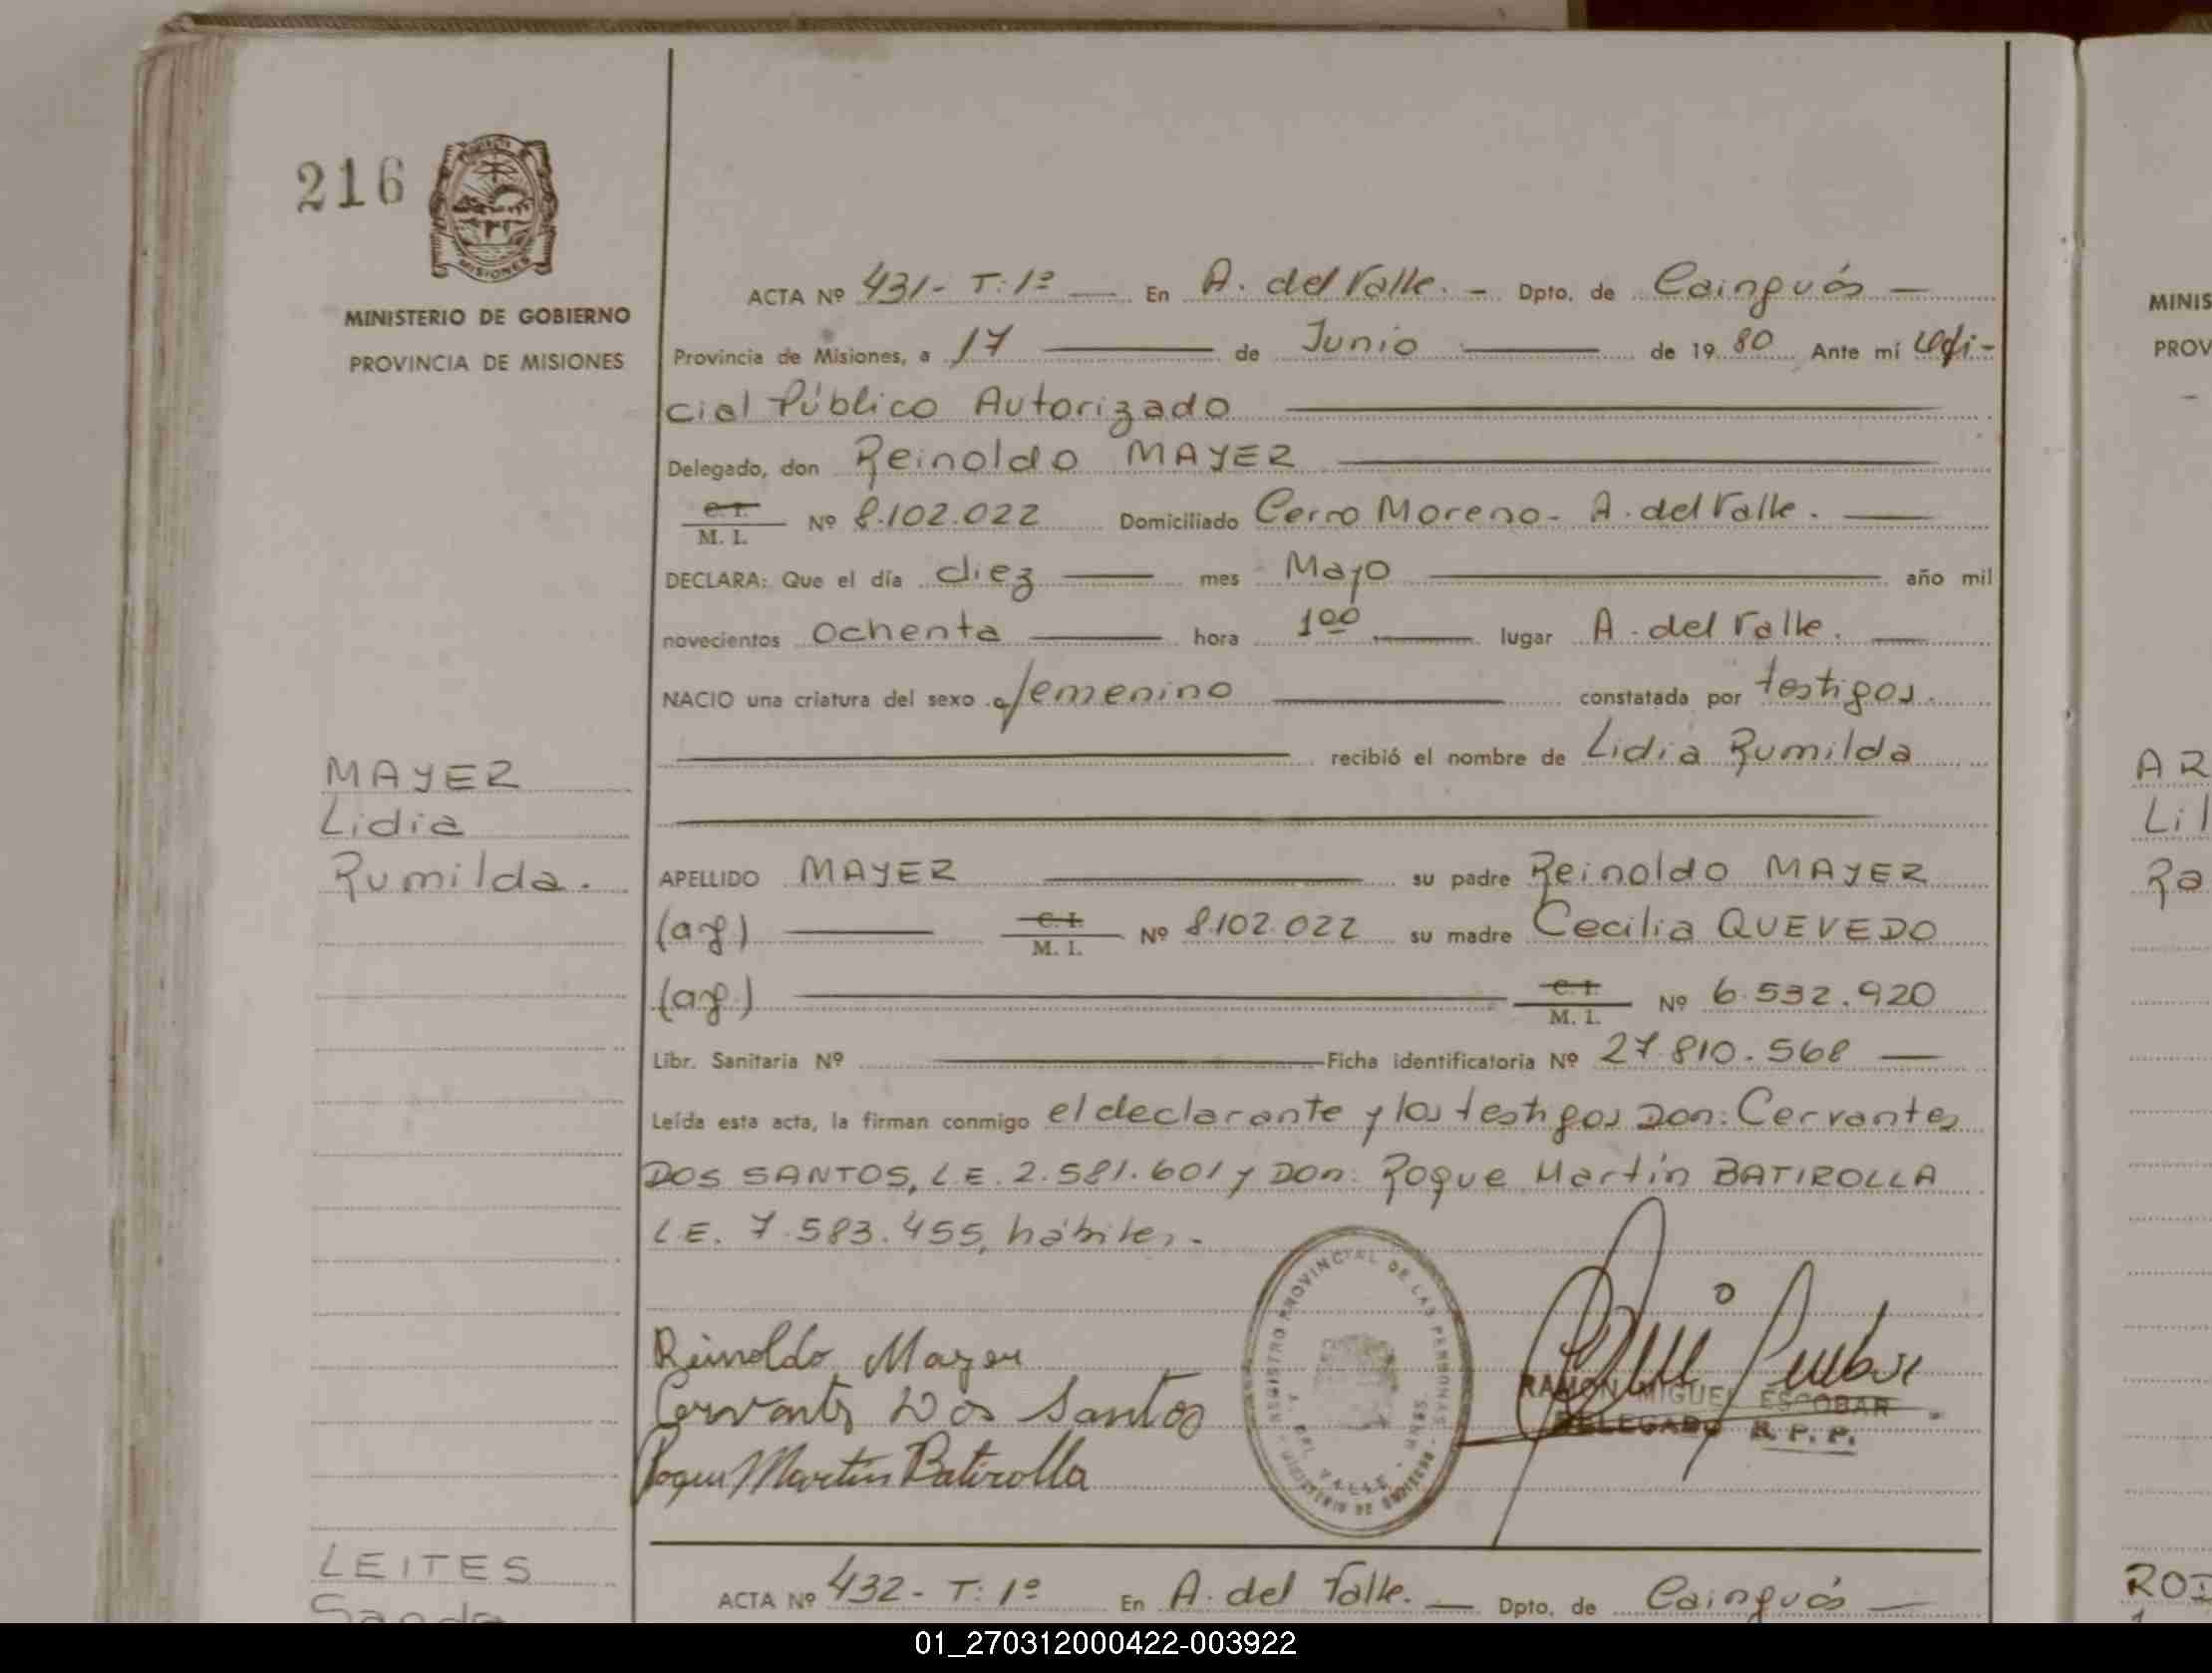 216
MISIONES
MINISTERIO DE GOBIERNO
PROVINCIA DE MISIONES
ACTA Nº 431- T: 1º — En A. del Valle. - Dpto. de Cainguás —
Provincia de Misiones, a 17 — de Junio — de 1980 Ante mí Ofi-
cial Público Autorizado
Delegado, don Reinoldo MAYER
C. I.
M. I. Nº 8.102.022 Domiciliado Cerro Moreno- A. del Valle. —
DECLARA: Que el día diez — mes Mayo — año mil
novecientos ochenta — hora 1 00 — lugar A. del Valle. —
NACIO una criatura del sexo femenino — constatada por testigos.
— recibió el nombre de Lidia Rumilda
MAYER
Lidia
Rumilda.
APELLIDO MAYER — su padre Reinoldo MAYER
(arg) — C. I.
M. I. Nº 8.102.022 su madre Cecilia QUEVEDO
(arg.) — C. I.
M. I. Nº 6.532.920
Libr. Sanitaria Nº — Ficha identificatoria Nº 27.810.568 —
Leída esta acta, la firman conmigo el declarante y los testigos Don: Cervantes
DOS SANTOS, L.E. 2.581.601 y Don: Roque Martín BATIROLLA
L.E. 7.583.455, hábiles.-
Reinoldo Mayer
Cervantes Dos Santos
Roque Martin Batirolla
REGISTRO PROVINCIAL DE LAS PERSONAS
DEL VALLE - MNES.
MINISTERIO DE GOBIERNO
RAMON MIGUEL ESCOBAR
DELEGADO R. P. P.
LEITES
ACTA Nº 432- T: 1º En A. del Valle. — Dpto. de Cainguás —
MINIS
PROV
AR
Lil
Ra
ROD
01_270312000422-003922